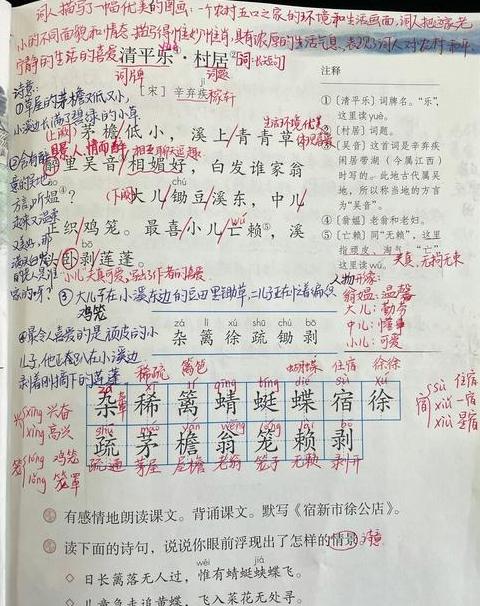 词人描写了一幅优美的图画：一个农村五口之家的环境和生活画面，词人把这家老
小的不同面貌和情态，描写得惟妙惟肖，具有浓厚的生活气息，表现了词人对农村和平
宁静的生活的喜爱
清平乐·村居
[词-长短句]
词牌 词题
jí
〔宋〕辛弃疾 稼轩
注释
诗意：
①草屋的茅檐又低又小，
溪边长满了碧绿的小草
(上阕) 茅檐低小，溪上青青草
生活环境优美
借景入情
相互聊天逗趣
醉里吴音相媚好，白发谁家翁
ǎo chú
媪？ (下阕) 大儿锄豆溪东，中儿
wú
正织鸡笼。最喜小儿亡赖，溪
bō
头卧剥莲蓬。
小儿天真可爱，
③大儿子在小溪东边的豆田里锄草，二儿子正在忙着编织
鸡笼
④最令人喜爱的是顽皮的小
儿子，他正卧在小溪边
剥着刚摘下的莲蓬
①〔清平乐〕词牌名。“乐”，
这里读yuè。
②〔村居〕词题。
③〔吴音〕这首词是辛弃疾
闲居带湖（今属江西）
时写的。此地古代属吴
地，所以称当地的方言
为“吴音”。
④〔翁媪〕老翁和老妇。
⑤〔亡赖〕同“无赖”，这里
指顽皮、淘气。“亡”
这里读wú。
天真，无拘无束
人物形象：
翁媪：温馨
大儿：勤劳
中儿：懂事
小儿：可爱
zá lí xú shū chú bō
杂 篱 徐 疏 锄 剥
稀疏 篱笆 蝴蝶 住宿 徐徐
zá xī lí qīng tíng dié sù xú
杂 稀 篱 蜻 蜓 蝶 宿 徐
shū máo yán wēng lóng lài bō
疏 茅 檐 翁 笼 赖 剥
疏通 茅屋 屋檐 老翁 笼子 无赖 剥开
兴 xīng 兴奋
xìng 高兴
笼 lóng 鸡笼
lǒng 笼罩
宿 sù 住宿
xiǔ 一宿
xiù 星宿
有感情地朗读课文。背诵课文。默写《宿新市徐公店》。
读下面的诗句，说说你眼前浮现出了怎样的情景。
wéi jiá
◇ 日长篱落无人过，惟有蜻蜓蛱蝶飞。
◇ 儿童急走追黄蝶，飞入菜花无处寻。